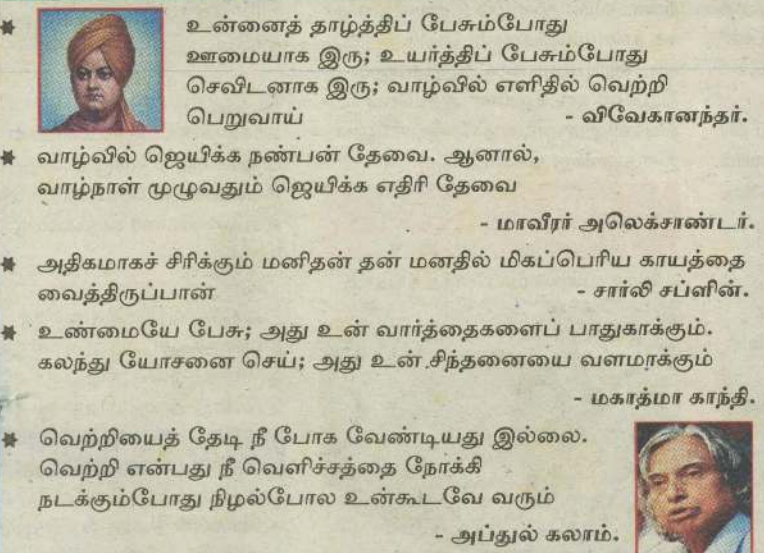 * உன்னைத் தாழ்த்திப் பேசும்போது
ஊமையாக இரு; உயர்த்திப் பேசும்போது
செவிடனாக இரு; வாழ்வில் எளிதில் வெற்றி
பெறுவாய் - விவேகானந்தர்.
* வாழ்வில் ஜெயிக்க நண்பன் தேவை. ஆனால்,
வாழ்நாள் முழுவதும் ஜெயிக்க எதிரி தேவை
- மாவீரர் அலெக்சாண்டர்.
* அதிகமாகச் சிரிக்கும் மனிதன் தன் மனதில் மிகப்பெரிய காயத்தை
வைத்திருப்பான் - சார்லி சப்ளின்.
* உண்மையே பேசு; அது உன் வார்த்தைகளைப் பாதுகாக்கும்.
கலந்து யோசனை செய்; அது உன் சிந்தனையை வளமாக்கும்
- மகாத்மா காந்தி.
* வெற்றியைத் தேடி நீ போக வேண்டியது இல்லை.
வெற்றி என்பது நீ வெளிச்சத்தை நோக்கி
நடக்கும்போது நிழல்போல உன்கூடவே வரும்
- அப்துல் கலாம்.